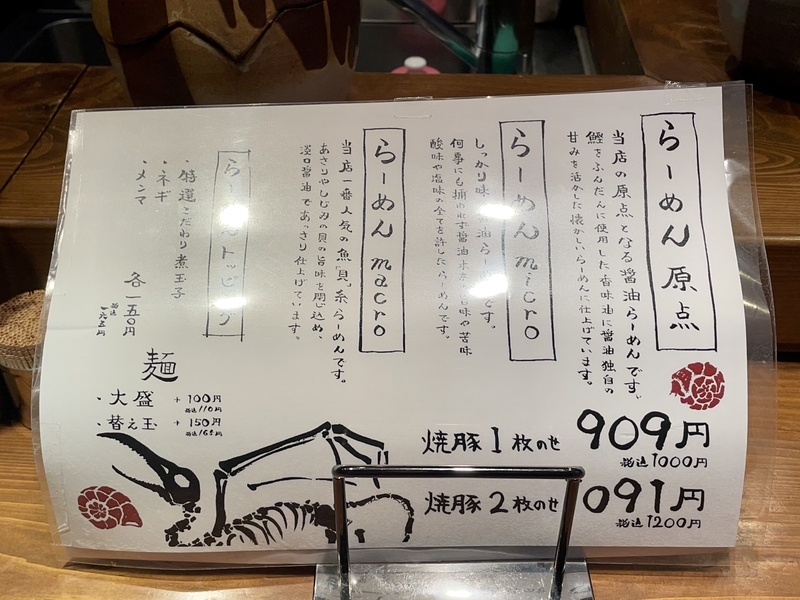 らーめん 原点
当店の原点となる醤油らーめんです。
鰹をふんだんに使用した香味油に醤油独自の
甘みを活かした懐かしいらーめんに仕上げています。
らーめん micro
しっかり味の醤油らーめんです。
何事にも捕われず醤油本来の旨味や苦味
酸味や塩味の全てを許したらーめんです。
らーめん macro
当店一番人気の魚貝系らーめんです。
あさりやしじみの貝の旨味を閉じ込め、
淡口醤油であっさり仕上げています。
らーめんトッピング
・特選こだわり煮玉子
・ネギ
・メンマ
各一五〇円
税込一六五円
麺
・大盛 +100円
税込110円
・替え玉 +150円
税込165円
焼豚1枚のせ 909円
税込1000円
焼豚2枚のせ 091円
税込1200円